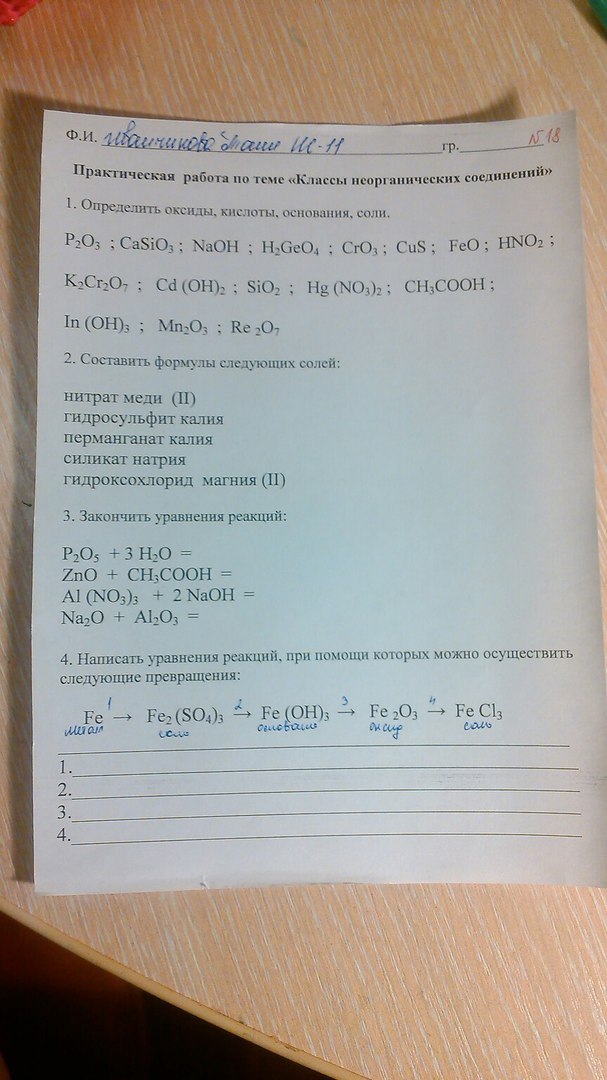 Ф.И. Иванчикова Таня Ш-11 гр. N 18
Практическая работа по теме «Классы неорганических соединений»
1. Определить оксиды, кислоты, основания, соли.
P₂O₃ ; CaSiO₃ ; NaOH ; H₂GeO₄ ; CrO₃ ; CuS ; FeO ; HNO₂ ;
K₂Cr₂O₇ ; Cd (OH)₂ ; SiO₂ ; Hg (NO₃)₂ ; CH₃COOH ;
In (OH)₃ ; Mn₂O₃ ; Re ₂O₇
2. Составить формулы следующих солей:
нитрат меди (II)
гидросульфит калия
перманганат калия
силикат натрия
гидроксохлорид магния (II)
3. Закончить уравнения реакций:
P₂O₅ + 3 H₂O =
ZnO + CH₃COOH =
Al (NO₃)₃ + 2 NaOH =
Na₂O + Al₂O₃ =
4. Написать уравнения реакций, при помощи которых можно осуществить
следующие превращения:
1 2 3 4
Fe → Fe₂ (SO₄)₃ → Fe (OH)₃ → Fe ₂O₃ → Fe Cl₃
метал соль основание оксид соль
1.
2.
3.
4.